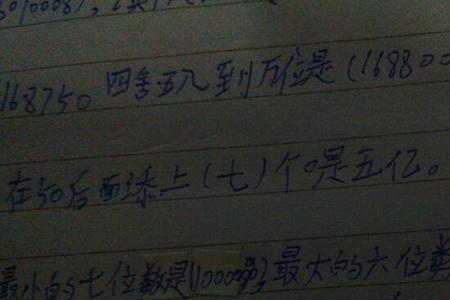 168750 四舍五入到万位是(168800
在50后面添上(七)个0是五亿。
最小的七位数是(1000000)最大的六位数